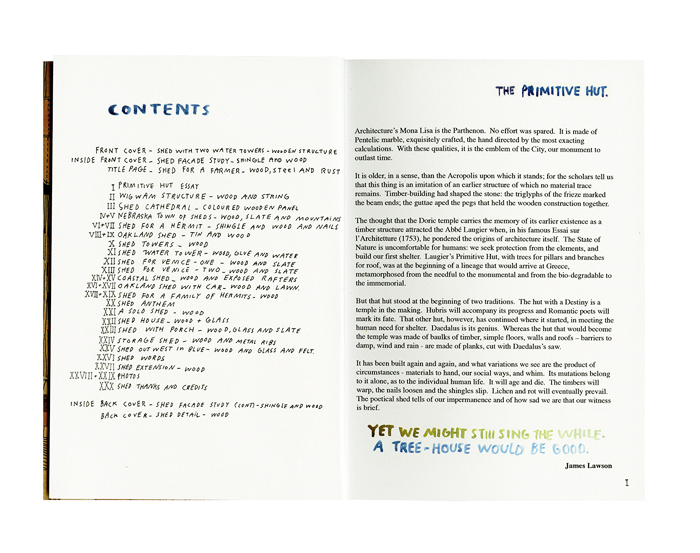 CONTENTS
FRONT COVER - SHED WITH TWO WATER TOWERS - WOODEN STRUCTURE
INSIDE FRONT COVER - SHED FACADE STUDY - SHINGLE AND WOOD
TITLE PAGE - SHED FOR A FARMER - WOOD, STEEL AND RUST
I PRIMITIVE HUT ESSAY
II WIGWAM STRUCTURE - WOOD AND STRING
III SHED CATHEDRAL - COLOURED WOODEN PANEL
IV+V NEBRASKA TOWN OF SHEDS - WOOD, SLATE AND MOUNTAINS
VI+VII SHED FOR A HERMIT - SHINGLE AND WOOD AND NAILS
VIII+IX OAKLAND SHED - TIN AND WOOD
X SHED TOWERS - WOOD
XI SHED WATER TOWER - WOOD, GLUE AND WATER
XII SHED FOR VENICE - ONE - WOOD AND SLATE
XIII SHED FOR VENICE - TWO - WOOD AND SLATE
XIV+XV COASTAL SHED - WOOD AND EXPOSED RAFTERS
XVI+XVII OAKLAND SHED WITH CAR - WOOD AND LAWN.
XVIII+XIX SHED FOR A FAMILY OF HERMITS - WOOD
XX SHED ANTHEM
XXI A SOLD SHED - WOOD
XXII SHED HOUSE - WOOD + GLASS
XXIII SHED WITH PORCH - WOOD, GLASS AND SLATE
XXIV STORAGE SHED - WOOD AND METAL RIBS
XXV SHED OUT WEST IN BLUE - WOOD AND GLASS AND FELT.
XXVI SHED WORDS
XXVII SHED EXTENSION - WOOD
XXVIII+XXIX PHOTOS
XXX SHED THANKS AND CREDITS
INSIDE BACK COVER - SHED FACADE STUDY (CONT) - SHINGLE AND WOOD
BACK COVER - SHED DETAIL - WOOD
THE PRIMITIVE HUT.
Architecture's Mona Lisa is the Parthenon. No effort was spared. It is made of
Pentelic marble, exquisitely crafted, the hand directed by the most exacting
calculations. With these qualities, it is the emblem of the City, our monument to
outlast time.
It is older, in a sense, than the Acropolis upon which it stands; for the scholars tell us
that this thing is an imitation of an earlier structure of which no material trace
remains. Timber-building had shaped the stone: the triglyphs of the frieze marked
the beam ends; the guttae aped the pegs that held the wooden construction together.
The thought that the Doric temple carries the memory of its earlier existence as a
timber structure attracted the Abbé Laugier when, in his famous Essai sur
l'Architetture (1753), he pondered the origins of architecture itself. The State of
Nature is uncomfortable for humans: we seek protection from the elements, and
build our first shelter. Laugier's Primitive Hut, with trees for pillars and branches
for roof, was at the beginning of a lineage that would arrive at Greece,
metamorphosed from the needful to the monumental and from the bio-degradable to
the immemorial.
But that hut stood at the beginning of two traditions. The hut with a Destiny is a
temple in the making. Hubris will accompany its progress and Romantic poets will
mark its fate. That other hut, however, has continued where it started, in meeting the
human need for shelter. Daedalus is its genius. Whereas the hut that would become
the temple was made of baulks of timber, simple floors, walls and roofs – barriers to
damp, wind and rain - are made of planks, cut with Daedalus's saw.
It has been built again and again, and what variations we see are the product of
circumstances - materials to hand, our social ways, and whim. Its mutations belong
to it alone, as to the individual human life. It will age and die. The timbers will
warp, the nails loosen and the shingles slip. Lichen and rot will eventually prevail.
The poetical shed tells of our impermanence and of how sad we are that our witness
is brief.
YET WE MIGHT STILL SING THE WHILE.
A TREE-HOUSE WOULD BE GOOD.
James Lawson
I